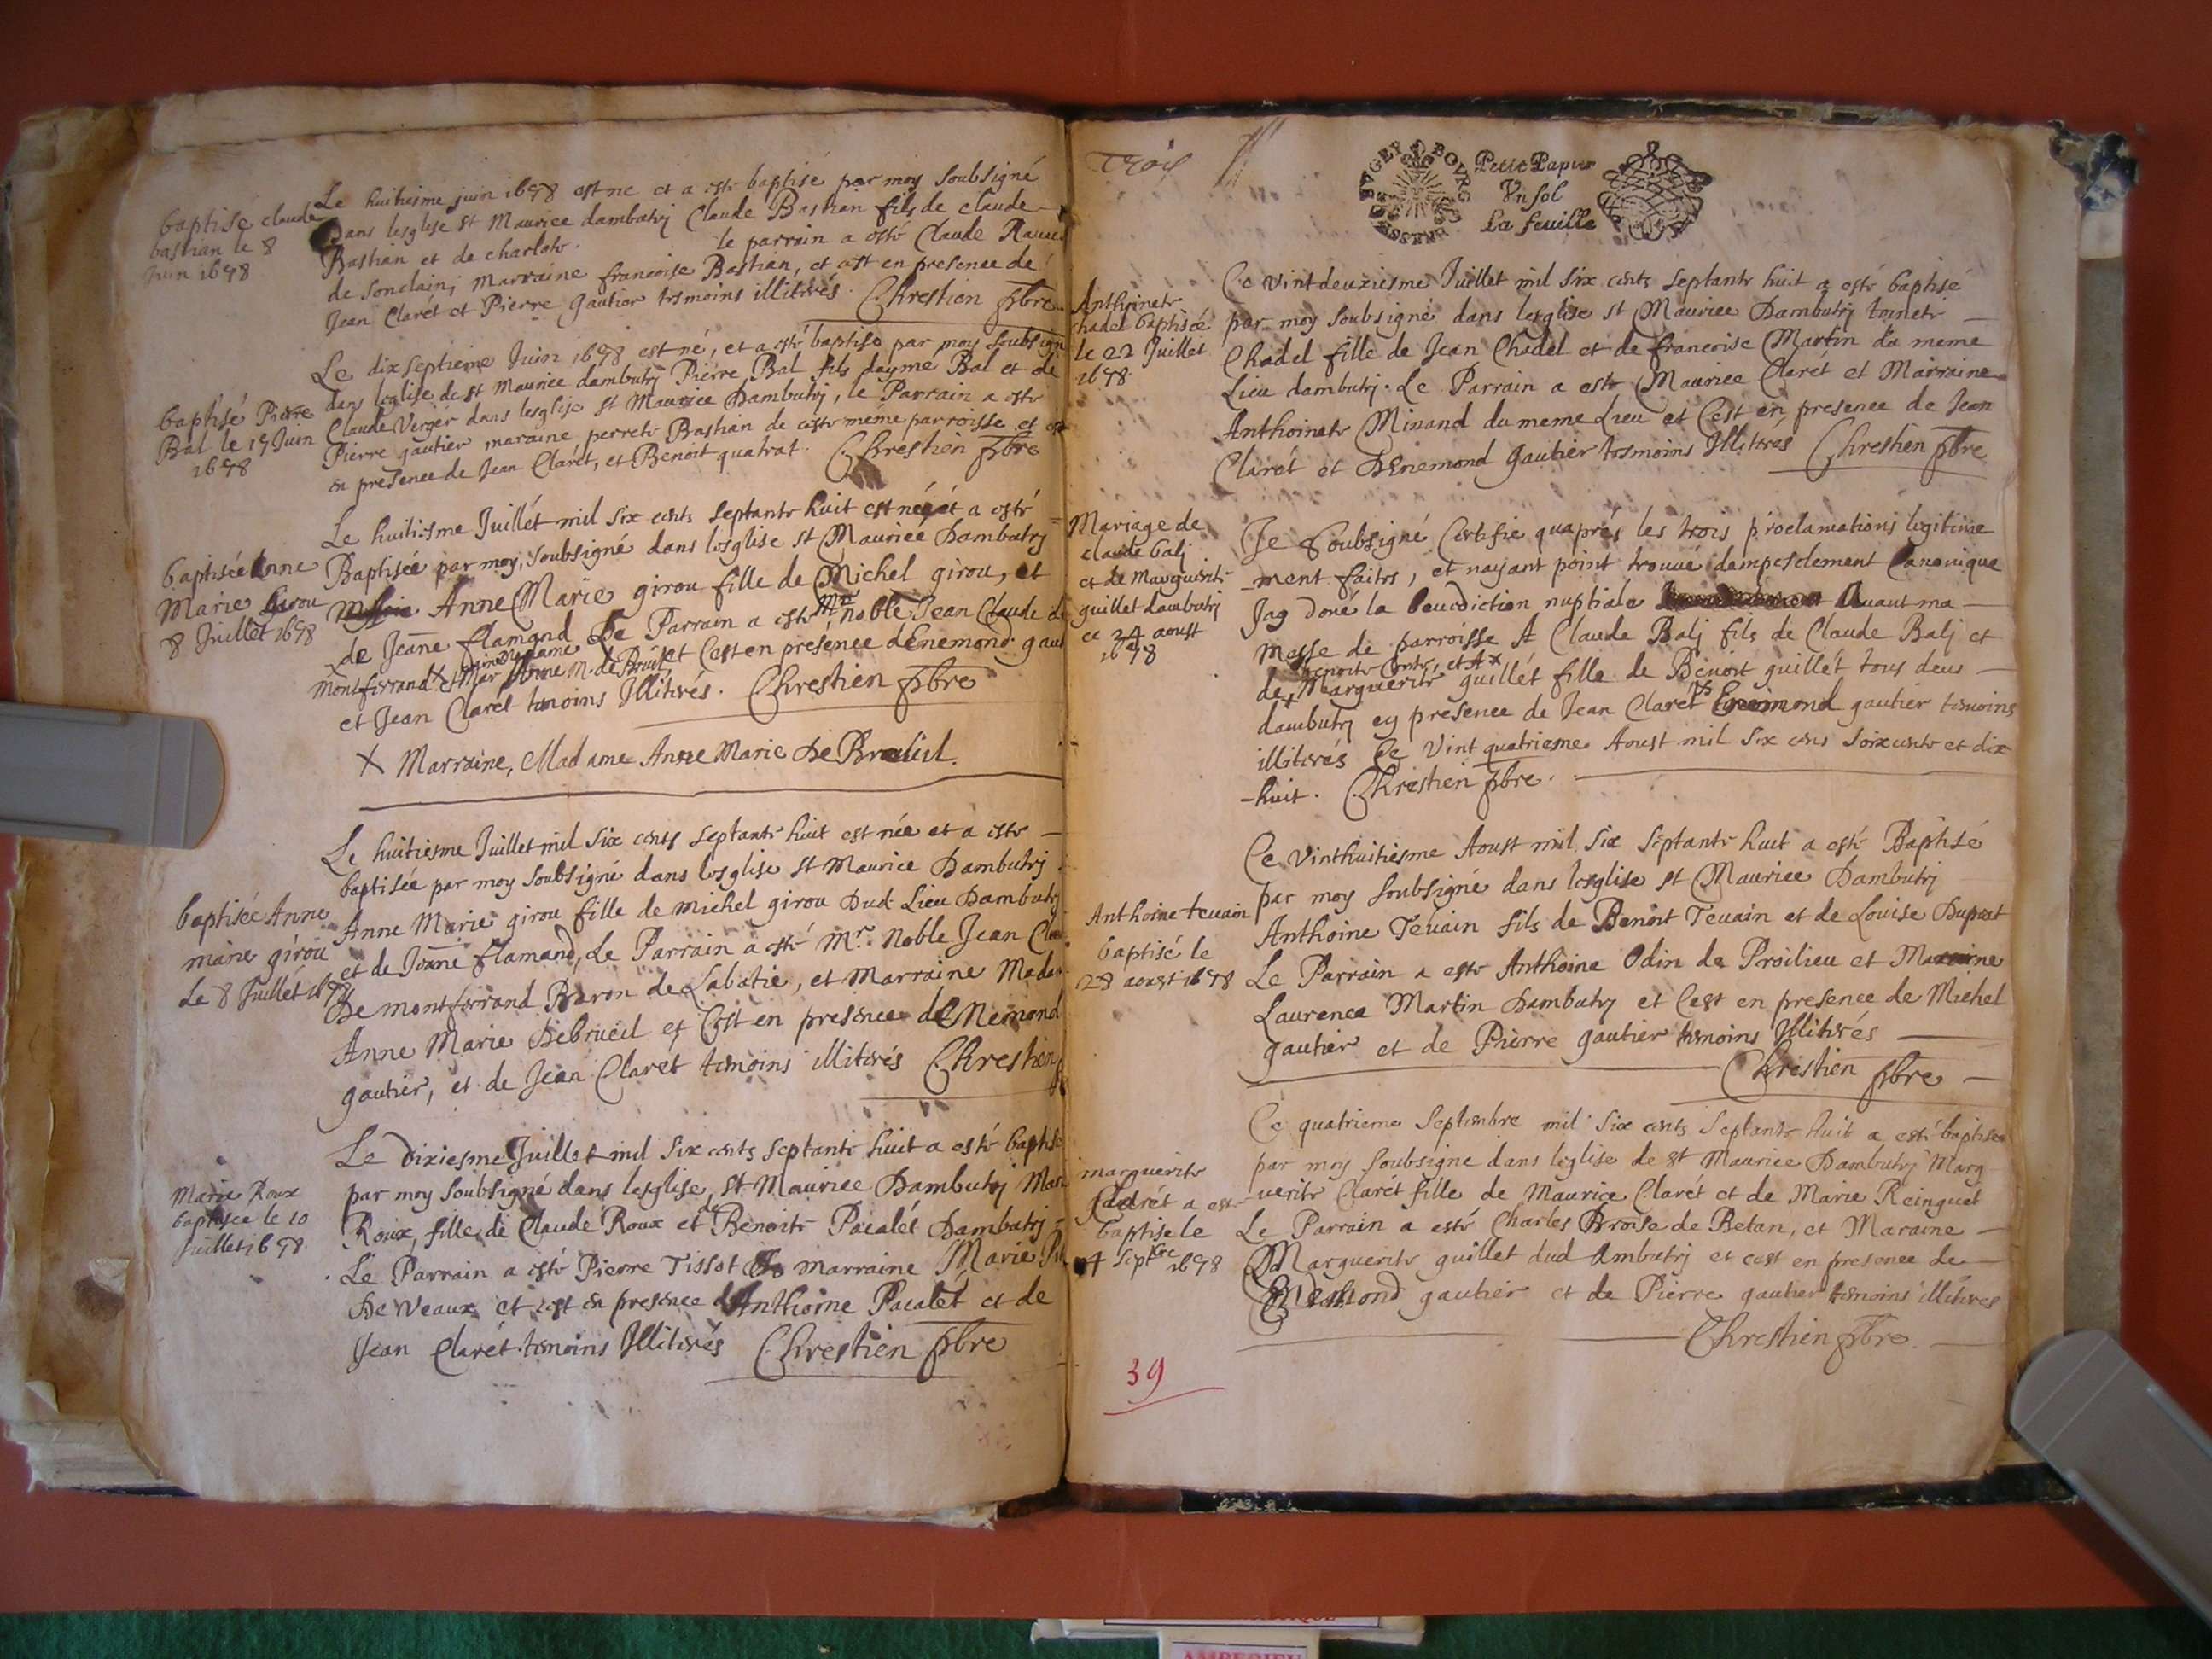 baptisé claude
bastian le 8
Juin 1678
Le huitiesme juin 1678 est ne et a esté baptisé par moy soubsigné
Dans lesglise st Maurice dambutrj Claude Bastian fils de claude
Bastian et de charlote. le parrain a esté Claude
de Sonclainj Marraine francoise Bastian, et est en presence de
Jean Clarét et Pierre gautier tesmoins illiterés. Chrestien pbre
baptisé Pierre
Bal le 17 Juin
1678
Le dix septieme Juin 1678 est né, et a esté baptisé par moy soubsigné
dans leglise de st Maurice dambutrj Pierre Bal fils daymé Bal et de
Claude Verger dans lesglise st Maurice Dambutrj, le Parrain a esté
Pierre gautier maraine, perrete Bastian de ceste méme parroisse et
en presence de Jean Clarét, et Benoit quatrat. Chrestien pbre
baptisée Anne
Marie Girou
8 Juillet 1678
Le huitiesme Juillét mil six cents septante huit est née et a esté
Baptisée par moy, soubsigné dans lesglise st Mauriée Dambutrj
Anne Marie girou fille de Michel girou, et
de Jeanne flamand Le Parrain a esté Mr noble Jean Claude de
montferrand X et Marraine Madame Anne M. de Brüel et Cest en présence dEnemond gaut
et Jean Clarét temoins Illiterés. Chrestien pbre
X Marraine, Madame Anne Marie De Brueil.
baptisée Anne
marie girou
Le 8 Juillét 1678
Le huitiesme Juillet mil six cents septante huit est née et a esté
baptisée par moy soubsigné dans lesglise st Maurice Dambutrj
Anne Marie girou fille de michel girou Dud. Lieu Dambutrj
et de Jeanne flamand, Le Parrain a esté Mr. Noble Jean
De montferrand Baron de Labatie, et Marraine
Anne Marie Debrueil et Cest en presence dEnemond
gautier, et de Jean Clarét temoins illiterés Chrestien
Marie Roux
baptisée le 10
Juillet 1678
Le dixiesme Juillet mil six cents septante huit a esté baptisé
par moy soubsigné dans lesglise St Maurice Dambutrj
Roux, fille de Claude Roux et de Benoite Pacalét Dambutrj
Le Parrain a esté Pierre Tissot marraine Marie
De Veaux et cest en presence dAnthoine Pacalét et de
Jean Clarét temoins Illiterés Chrestien pbre
Trois
BVGEY BOVRG
Petit Papier
Vn sol
La feuille
Anthoinete
chadel baptisée
le 22 Juillet
1678
Ce vintdeuxiesme Juillet mil six cents septante huit a esté baptisé
par moy soubsigné dans lesglise st Maurice Dambutrj
Chadel fille de Jean Chadel et de francoise Martin du meme
Lieu dambutrj. Le Parrain a esté Maurice Clarét et Marraine
Anthoinete Minand du meme Lieu et Cest en presence de Jean
Clarét et DEnemond gautier tesmoins Illiterés Chrestien pbre
Mariage de
claude balj
et de Marguerite
guillet dambutrj
ce 24 aoust
1678
Je Soubsigné Certifie quaprés les trois proclamations legitime
-ment faites, et nayant point trouué dampesdement Canonique
Jay doné la benediction nuptiale Auant ma
Messe de parroisse A Claude Balj fils de Claude Balj et
de + Marguerite guillét fille de Benoit guillét tous deus
dambutrj en presence de Jean Clarét Enemond gautier temoins
illiterés Ce Vint quatriesme Aoust mil six cens soixante et dix
-huit. Chrestien pbre.
Anthoine teuain
baptisé le
28 aoust 1678
Ce Vinthuitiesme Aoust mil six septante huit a esté Baptisé
par moy soubsigné dans lesglise st Maurice Dambutrj
Anthoine Teuain fils de Benoit Teuain et de Louise Duprat
Le Parrain a esté Anthoine Odin de Proilieu et Maraine
Laurence Martin Dambutrj et Cest en presence de Michel
gautier et de Pierre gautier temoins Illiterés
Chrestien pbre
marguerite
Clarét a esté
baptise le
4 Septbre 1678
Ce quatrieme Septembre mil six cents Septante huit a esté baptisee
par moy soubsigne dans leglise de st Maurice Dambutrj Marg
-uerite Clarét fille de Maurice Clarét et de Marie Reinguet
Le Parrain a esté Charles Broise de Betan, et Maraine
Marguerite guillet dud Ambutrj et cest en presence de
Enemond gautier et de Pierre gautier temoins illiteres
Chrestien pbre.
39